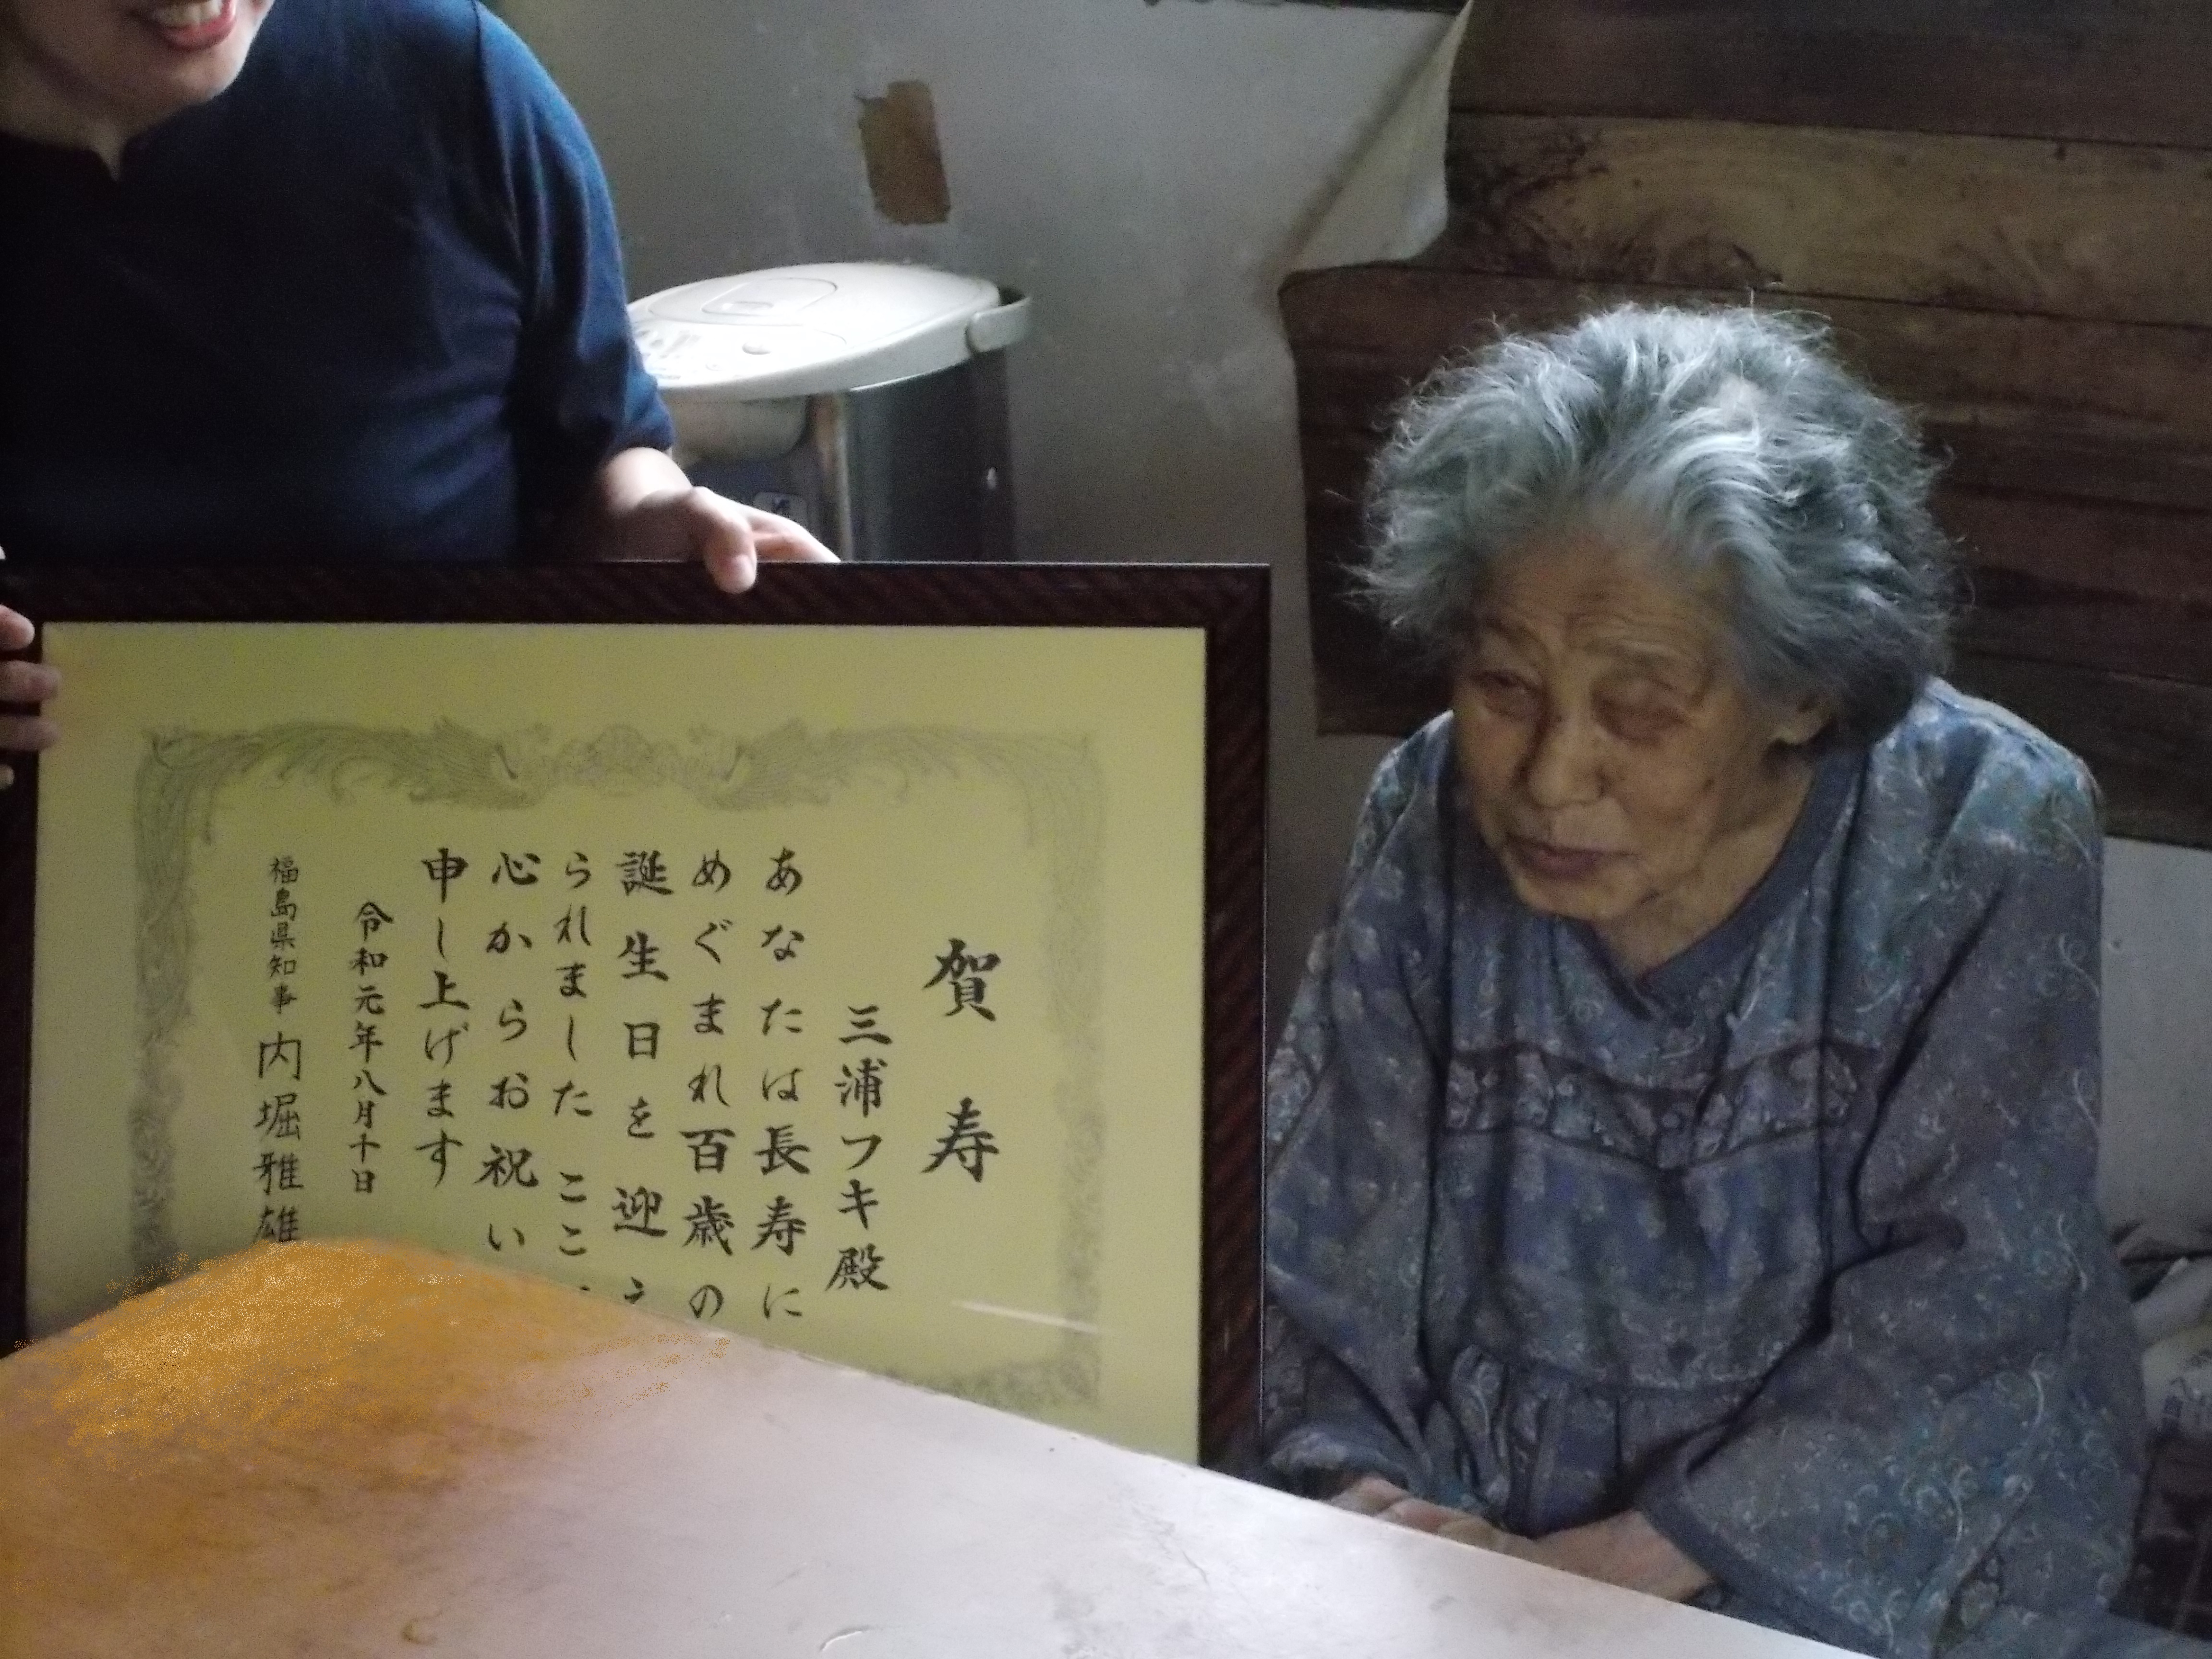 賀寿
三浦フキ殿
あなたは長寿に
めぐまれ百歳の
誕生日を迎え
られました ここ
心からお祝い
申し上げます
令和元年八月十日
福島県知事 内堀雅雄